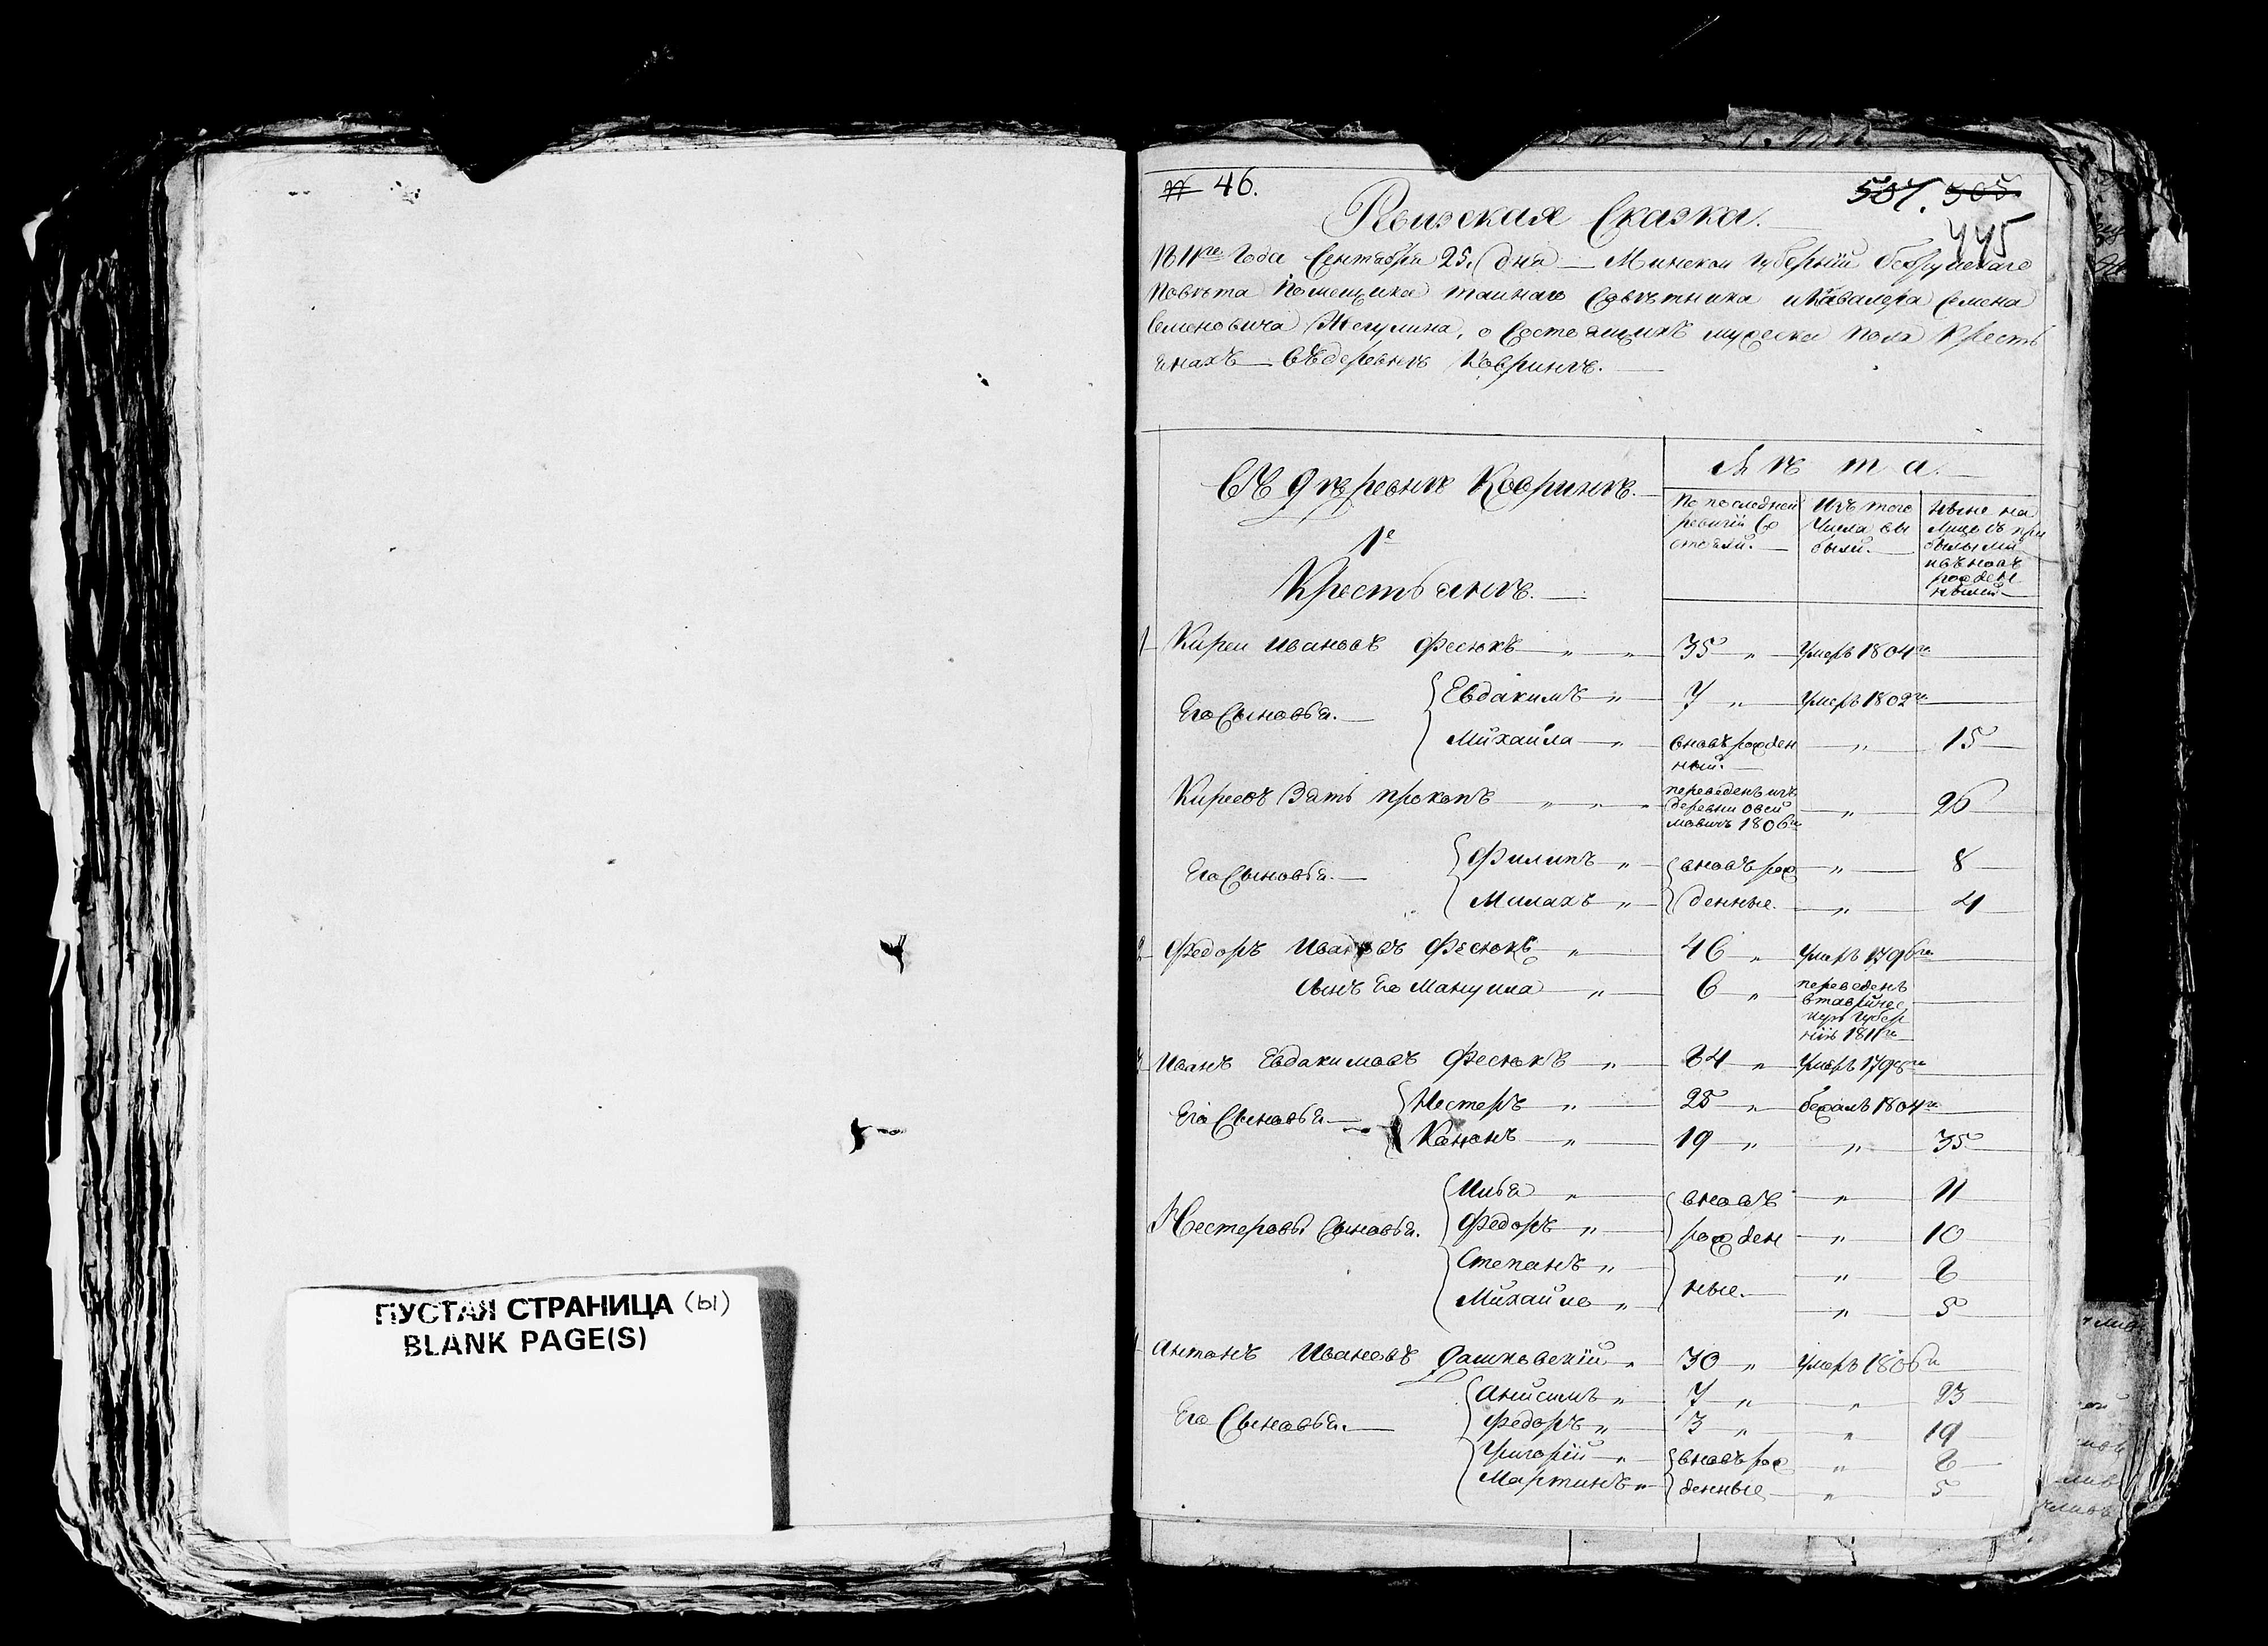 ПУСТАЯ СТРАНИЦА (ы)
BLANK PAGE(S)
№ 46.
507. 505.
445
Ревизская Сказка.
1811го Года Сентября 25. дня — Минской Губернии Бобруйскаго
Повѣта Помещика тайнаго Совѣтника и Кавалера Семена
Семеновича Жегулина, о Состоящихъ мужеска пола Кресть
янахъ — Въ деревнѣ Ковринѣ.
Въ Деревнѣ Ковринѣ.
Лѣта.
По последней
ревизіи Со
стояли.
Изъ того
Числа вы
были.
Ныне на
Лицо съ при
былыми
и въновь
рожден
ными
1е
Крестьянѣ.
1 Кирей Ивановъ Фесюкъ " " 35 " Умеръ 1804го
Его Сыновья.
Евдакимъ " 7 " Умеръ 1802го
Михайла " вновь рожден " 15
ный.
Киреевъ Зять прокопъ " " " переведенъ изъ
деревни
1806го " 26
Его Сыновья.
Филипъ " вновь рож " 8
Малахъ " денные. " 4
2 Федоръ Ивановъ Фесюкъ " 46 " Умеръ 1796го
Сынъ Его Мануила " 6 " переведенъ
в тавричес
кую губер
нію 1811го
3 Иванъ Евдакимовъ Фесюкъ " 64 " Умеръ 1798го
Его Сыновья
Нестеръ " 25 " бежалъ 1804го
Конанъ " 19 " " 35
Нестеровы Сыновья.
Илья " вновь " 11
Федоръ " рожден " 10
Степанъ " ные. " 6
Михайло " " 5
4 Антонъ Ивановъ Дашковскій " 30 " Умеръ 1806го
Его Сыновья.
Анисимъ " 7 " " 23
Федоръ " 3 " " 19
Григорій " вновь рож " 6
Мартинъ " денные " 5